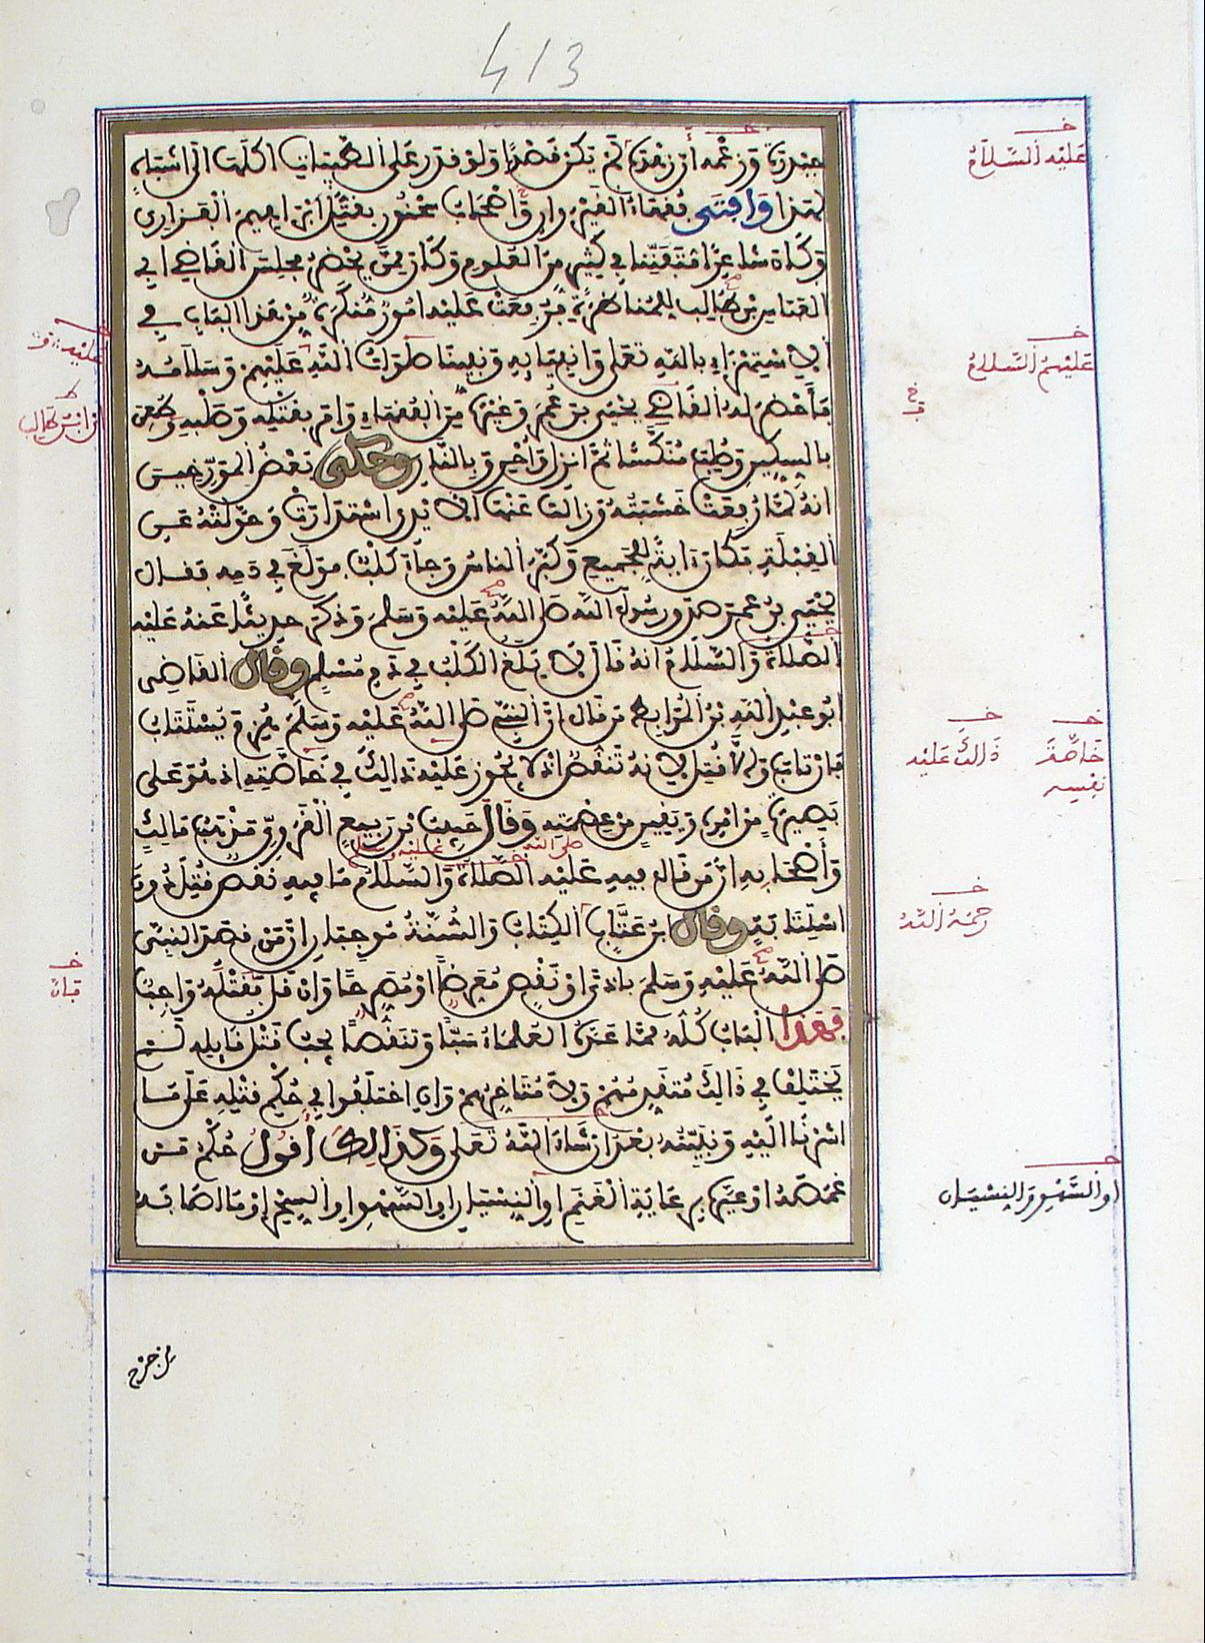 413
حيدرة وزعمه أن زهده لم يكن قصدا ولو قدر على الطيبات أكلها الى أشباه
لهذا وافتى فقهاء القيروان وأصحاب سحنون بقتل إبراهيم الفزاري
وكان شاعرا متفننا في كثير من العلوم وكان ممن يحضر مجلس القاضي أبي
العباس بن طالب للمناظرة فرفعت عليه امور منكرة من هذا الباب في
الاستهزاء بالله تعلى وانبيائه ونبينا صلوات الله عليهم وسلامه
فأحضر له القاضي يحيى بن عمر وغيره من الفقهاء وامر بقتله وصلبه وطعن
بالسكين وصلب منكسا ثم انزل وأحرق بالنار وحكى بعض المورخين
انه لما رفعت خشبته وزالت عنها الايدي استدارت وحولته عن
القبلة فكان ءاية للجميع وكبر الناس وجاء كلب فولغ في دمه فقال
يحيى بن عمر صدق رسول الله صلى الله عليه وسلم وذكر حديثا عنه عليه
الصلاة والسلام انه قال لا يلغ الكلب في دم مسلم وقال القاضى
ابو عبد الله بن المرابط من قال ان النبي صلى الله عليه وسلم هزم يستتاب
فان تاب وإلا قتل لانه تنقص اذ لا يجوز عليه ذالك في خاصته اذ هو على
بصيرة من امره ويقين من عصمته وقال حبيب بن ربيع القروي مذهب مالك
وأصحابه ان من قال فيه عليه الصلاة والسلام ما فيه نقص قتل دون
استتابة وقال ابن عتاب الكتاب والسنة موجبان ان من قصد النبي
صلى الله عليه وسلم باذى او نقص معرضا او مصرحا وان قل فقتله واجب
فهذا الباب كله مما عده العلماء سبا وتنقصا يجب قتل قايله لم
يختلف في ذالك متقدمهم ولا متاخرهم وان اختلفوا في حكم قتله على ما
اشرنا اليه ونبينه بعد ان شاء الله تعلى وكذالك أقول حكم من
غمصه او عيره برعاية الغنم او النسيان او السهو او السحر او ما اصابه
من جرح
عليه السلام
عليهم السلام
ذالك عليه
خاصة
نفسه
رحمه الله
او السهو والنسيان
عليه
ابن طالب
فان
صلى الله عليه وسلم